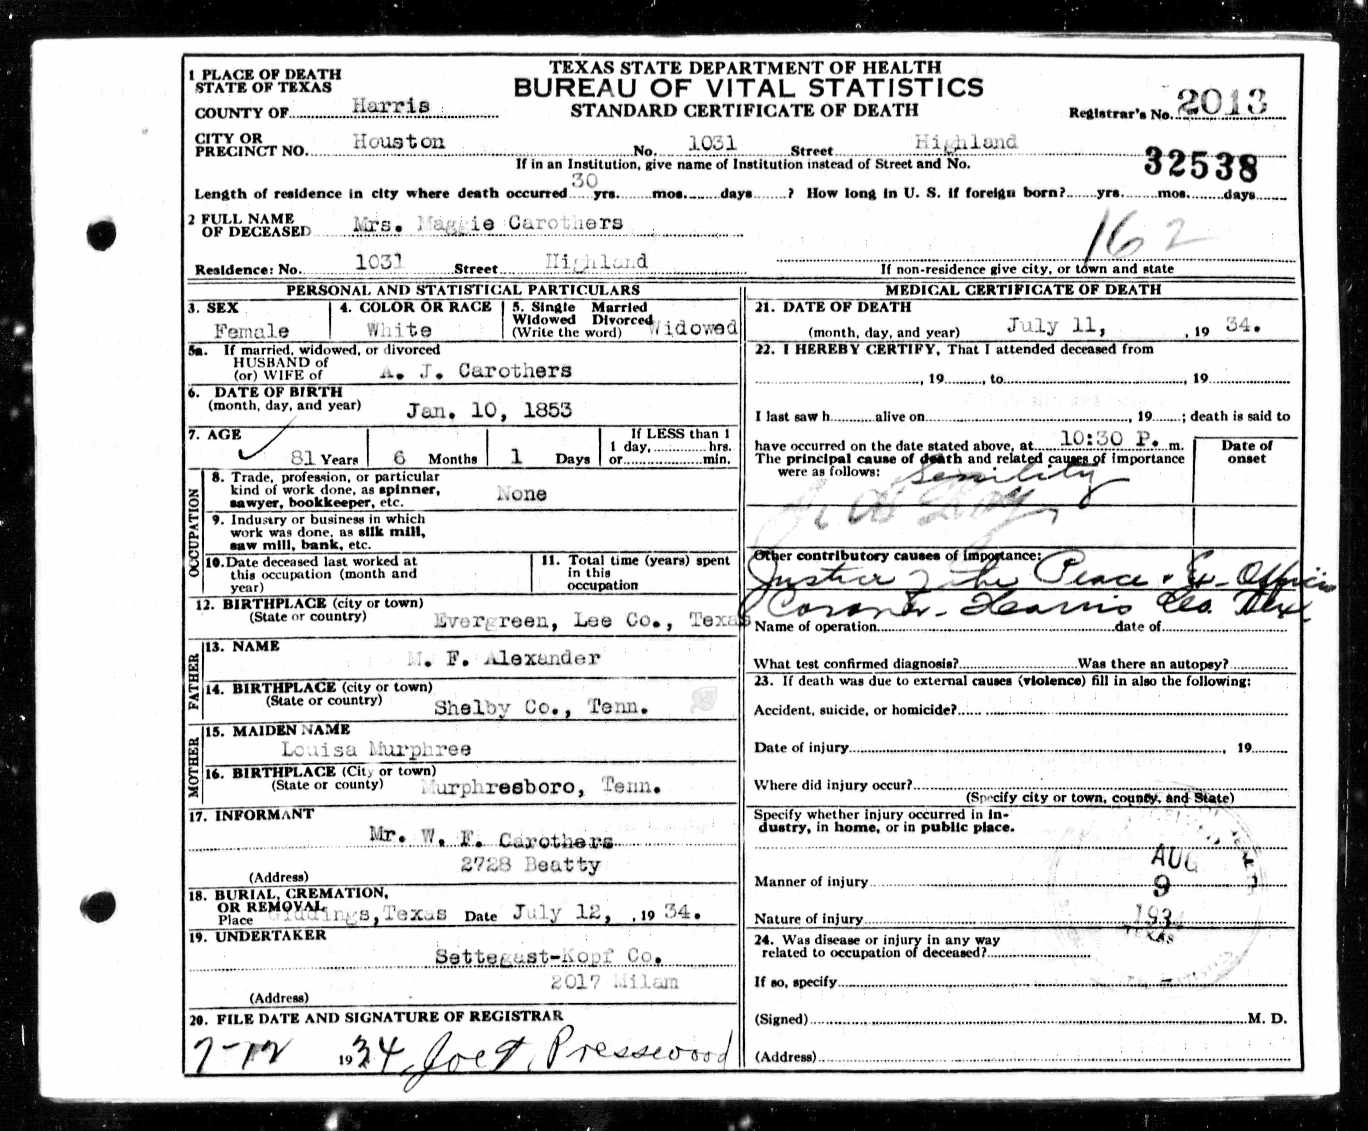 TEXAS STATE DEPARTMENT OF HEALTH
BUREAU OF VITAL STATISTICS
STANDARD CERTIFICATE OF DEATH
1 PLACE OF DEATH
STATE OF TEXAS
COUNTY OF Harris
Registrar's No. 2013
CITY OR
PRECINCT NO. Houston No. 1031 Street Highland
If in an Institution, give name of Institution instead of Street and No.
32538
Length of residence in city where death occurred 30 yrs. mos. days ? How long in U. S. if foreign born? yrs. mos. days
2 FULL NAME
OF DECEASED Mrs. Maggie Carothers
162
Residence: No. 1031 Street Highland
If non-residence give city, or town and state
PERSONAL AND STATISTICAL PARTICULARS
3. SEX
Female
4. COLOR OR RACE
White
5. Single Married
Widowed Divorced
(Write the word) Widowed
5a. If married, widowed, or divorced
HUSBAND of
(or) WIFE of A. J. Carothers
6. DATE OF BIRTH
(month, day, and year) Jan. 10, 1853
7. AGE
81 Years 6 Months 1 Days
If LESS than 1
1 day, hrs.
or min.
OCCUPATION
8. Trade, profession, or particular
kind of work done, as spinner,
sawyer, bookkeeper, etc. None
9. Industry or business in which
work was done, as silk mill,
saw mill, bank, etc.
10. Date deceased last worked at
this occupation (month and
year)
11. Total time (years) spent
in this
occupation
12. BIRTHPLACE (city or town)
(State or country) Evergreen, Lee Co., Texas
FATHER
13. NAME
M. F. Alexander
14. BIRTHPLACE (city or town)
(State or country) Shelby Co., Tenn.
MOTHER
15. MAIDEN NAME
Louisa Murphree
16. BIRTHPLACE (City or town)
(State or county) Murphresboro, Tenn.
17. INFORMANT
Mr. W. F. Carothers
2728 Beatty
(Address)
18. BURIAL, CREMATION,
OR REMOVAL
Place Giddings, Texas Date July 12, , 19 34.
19. UNDERTAKER
Settegast-Kopf Co.
2017 Milam
(Address)
20. FILE DATE AND SIGNATURE OF REGISTRAR
7-12 1934, Joe T. Presswood
MEDICAL CERTIFICATE OF DEATH
21. DATE OF DEATH
(month, day, and year) July 11, , 19 34.
22. I HEREBY CERTIFY, That I attended deceased from
, 19 , to , 19
I last saw h alive on , 19 ; death is said to
have occurred on the date stated above, at 10:30 P. m.
The principal cause of death and related causes of importance
were as follows: Senility
Date of
onset
Other contributory causes of importance:
Justice of the Peace & Ex-Officio
Coroner - Harris Co. Tex.
Name of operation date of
What test confirmed diagnosis? Was there an autopsy?
23. If death was due to external causes (violence) fill in also the following:
Accident, suicide, or homicide?
Date of injury , 19
Where did injury occur?
(Specify city or town, county, and State)
Specify whether injury occurred in in-
dustry, in home, or in public place.
AUG
9
193
TEXAS
Manner of injury
Nature of injury
24. Was disease or injury in any way
related to occupation of deceased?
If so, specify
(Signed) M. D.
(Address)